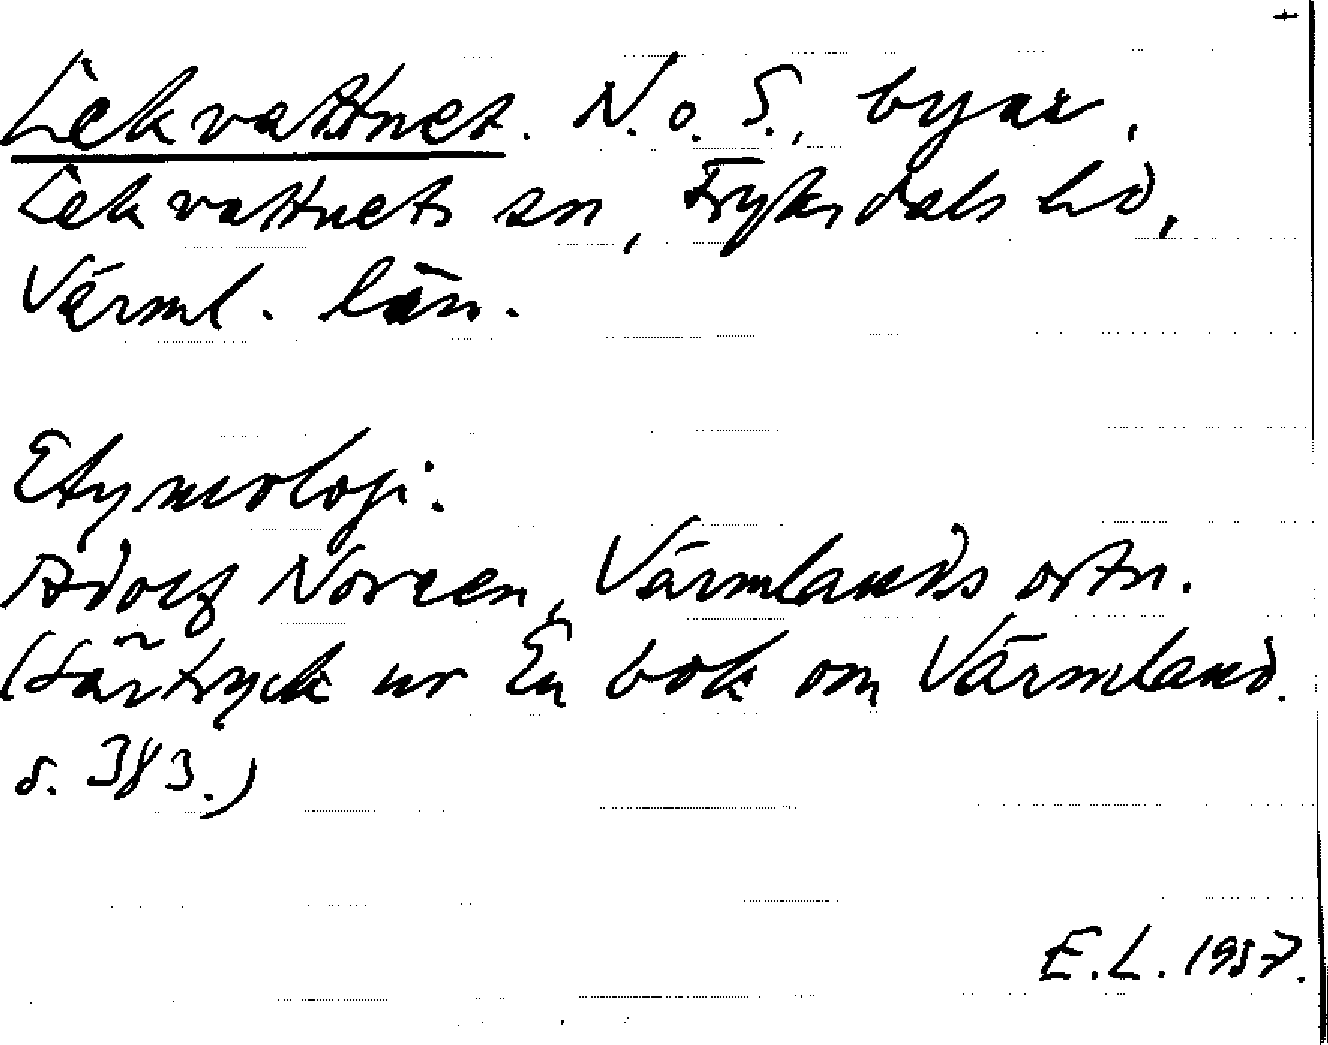 +
Lekvattnet. N. o. S., byar,
Lekvattnets sn, Fryksdals hd,
Värml. län.
Etymologi:
Adolf Noreen, Värmlands ortn.
(Särtryck ur En bok om Värmland.
s. 383.)
E.L. 1957.